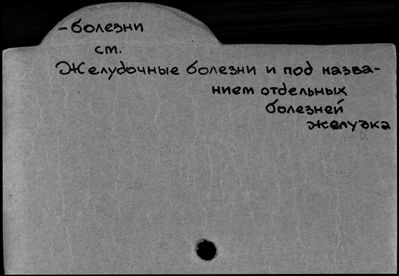 -болезни
см.
Желудочные болезни и под назва-
нием отдельных
болезней
желудка